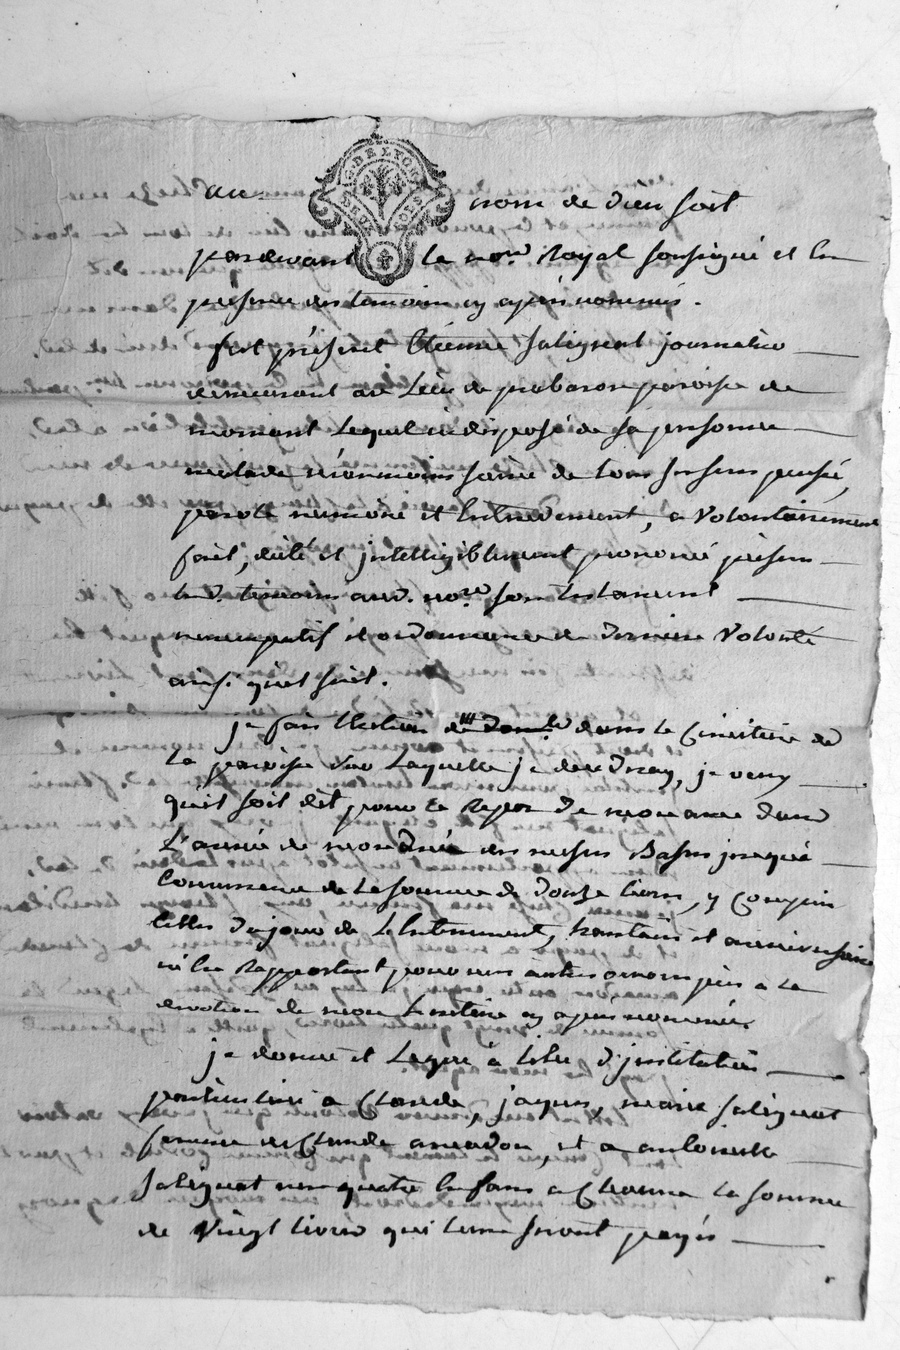 au nom de dieu soit
G. DE LYON
DEUX SOLS
pardevant le no.re Royal soussigné et en
presence des temoins cy apres nommés.
fut présent Etienne salignat journalier
demeurant au lieu de probaron paroisse de
mornant lequel indisposé de sa personne
malade néanmoins sain de tous ses sens pensé,
parolle memoire et Entendement, a volontairement
fait, dicté et intelligiblement prononcé présens
les d. temoins aud. no.re son testament
noncupatif et ordonnance de derniere volonté
ainsi qu'il suit.
je fais Election dans le Cimetiere de
la paroisse sur laquelle je decedray, je veux
qu'il soit dit pour le repos de mon ame dans
L'année de mon decés des messes Basses jusqu'à
Concurrence de la somme de douze livres, y Compris
celles du jour de l'Enterrement, trantain et anniversaire
m'en Rapportant pour mes autres œuvres pies a la
devotion de mon heritiere cy apres nommée.
je donne et legue à titre d'institution
particuliere a Claude, jaques, marie salignat
femme de Claude amadon, et a antoinette
salignat mes quatre Enfans a Chacun la somme
de vingt livres qui leur seront payés